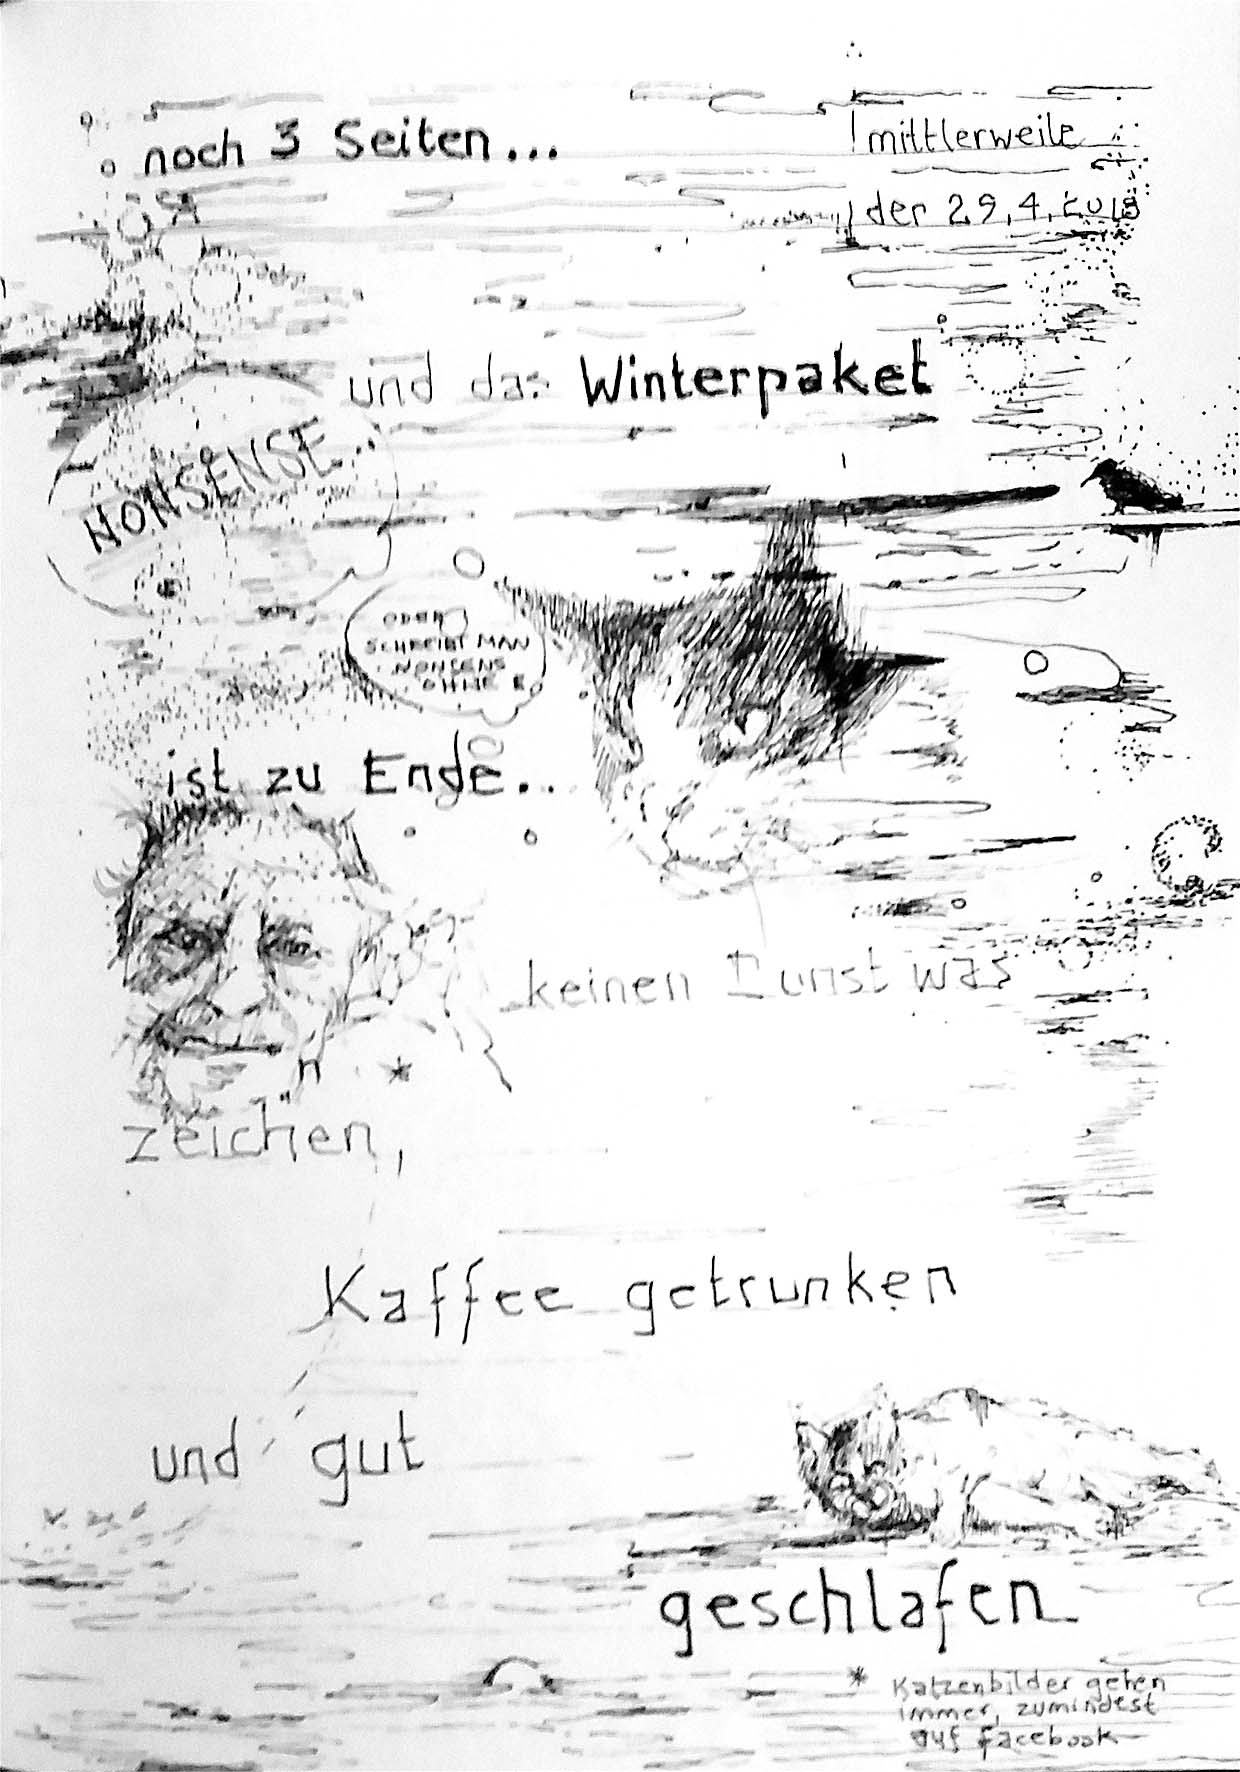 noch 3 Seiten...
mittlerweile
der 29.4.2018
und das Winterpaket
NONSENSE...
ODER
SCHREIBT MAN
NONSENS
OHNE E
ist zu Ende...
keinen Dunst was
n *
zeichen,
Kaffee getrunken
und gut
geschlafen
* Katzenbilder gehen
immer, zumindest
auf facebook